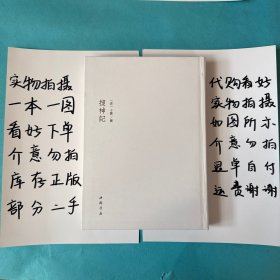 实物拍摄
一本一图
看好下单
介意勿拍
库存正版
部分二手
搜神記
中國書店
代购看好
实物拍摄
如图所示
介意勿拍
退单自付
运费谢谢